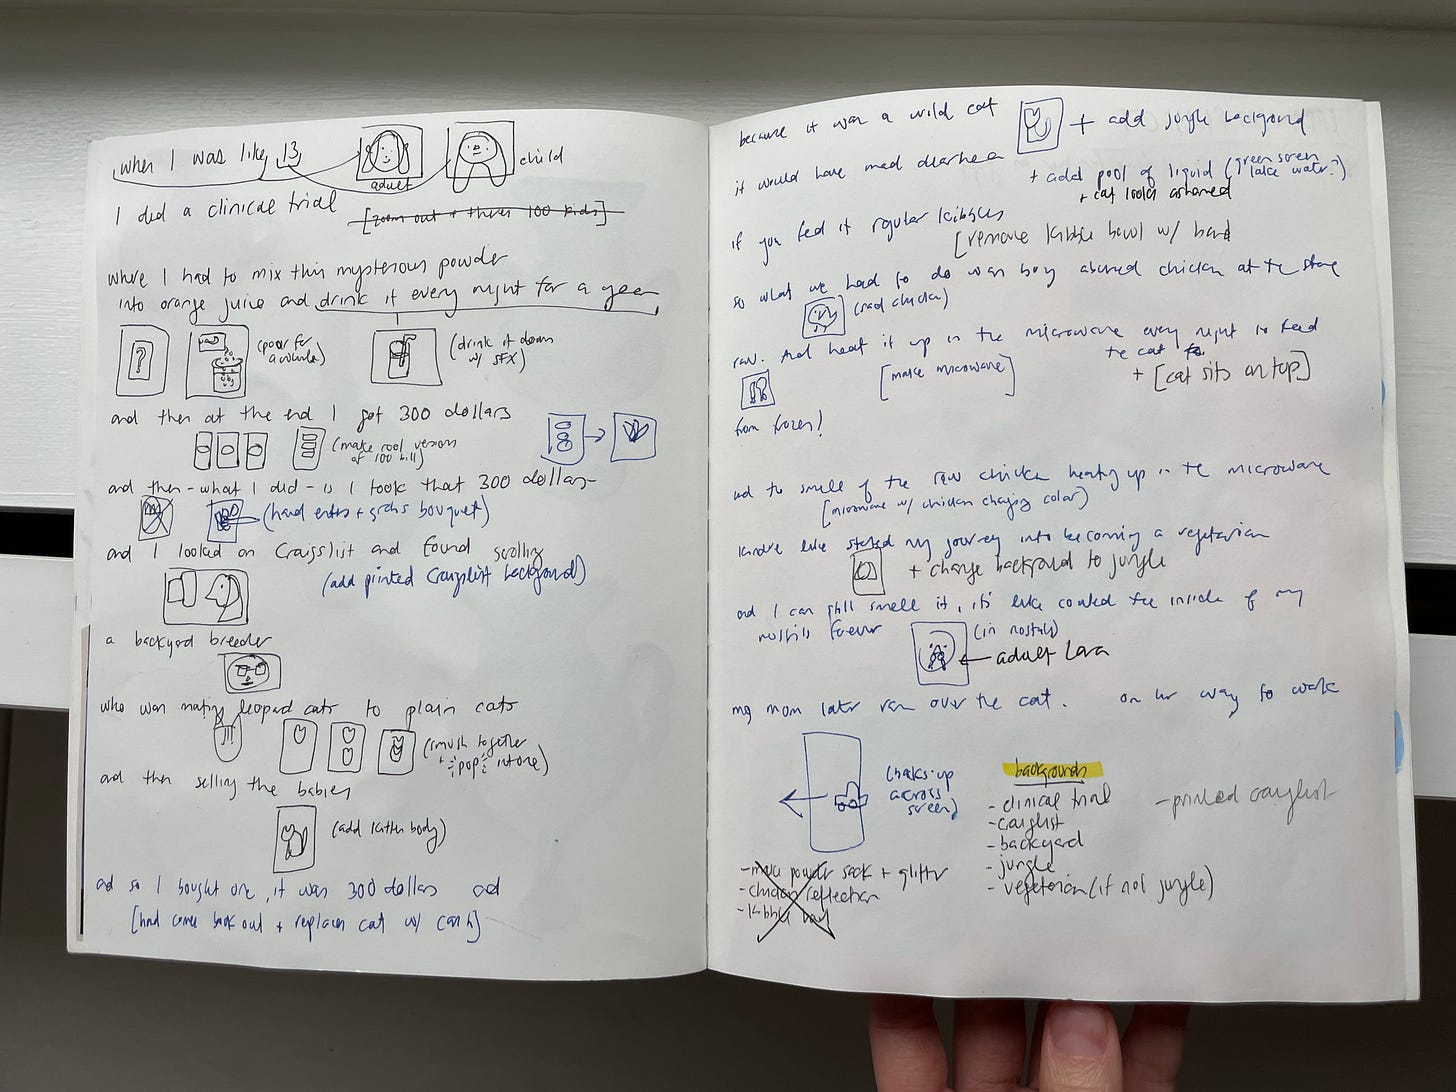 when I was like 13
adult
child
I did a clinical trial
[zoom out + theres 100 kids]
where I had to mix this mysterous powder
into orange juice and drink it every night for a year
?
(pour for
a while)
(drink it down
w/ SFX)
and then at the end I got 300 dollars
(make cool version
of 100 bill)
and then - what I did - is I took that 300 dollars -
(hand enters + grabs bouquet)
and I looked on Craigslist and found
scrolling
(add printed Craigslist background)
a backyard breeder
who was mating leopard cats to plain cats
(smush together
+ pop into one)
and then selling the babies
(add kitten body)
and so I bought one, it was 300 dollars and
[hand comes back out + replaces cat w/ cash]
because it was a wild cat
+ add jungle background
it would have mad diarhea
+ add pool of liquid (green screen
lake water?)
+ cat looks ashamed
if you fed it regular kibbles
[remove kibble bowl w/ hand
so what we had to do was buy abused chicken at the store
(sad chicken)
raw. And heat it up in the microwave every night to feed
the cat
[make microwave]
+ [cat sits on top]
from frozen!
and the smell of the raw chicken heating up in the microwave
[microwave w/ chicken changing color)
kind of like started my journey into becoming a vegetarian
+ change background to jungle
and I can still smell it, its like coated the inside of my
nostrils forever
(in nostrils)
adult Lara
my mom later ran over the cat. on her way to work
across
screen)
backgrounds
- clinical trial
- printed craigslist
- craiglist
- backyard
- jungle
- vegeterian (if not jungle)
- make powder sack + glitter
- chicken reflection
- kibble bowl